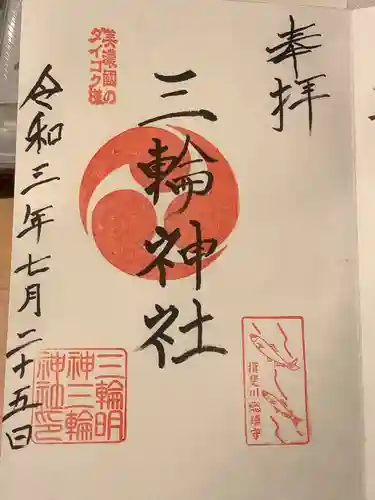 奉拝
美濃國の
ダイゴク様
三輪神社
令和三年七月二十五日
三輪明
神三輪
神社印